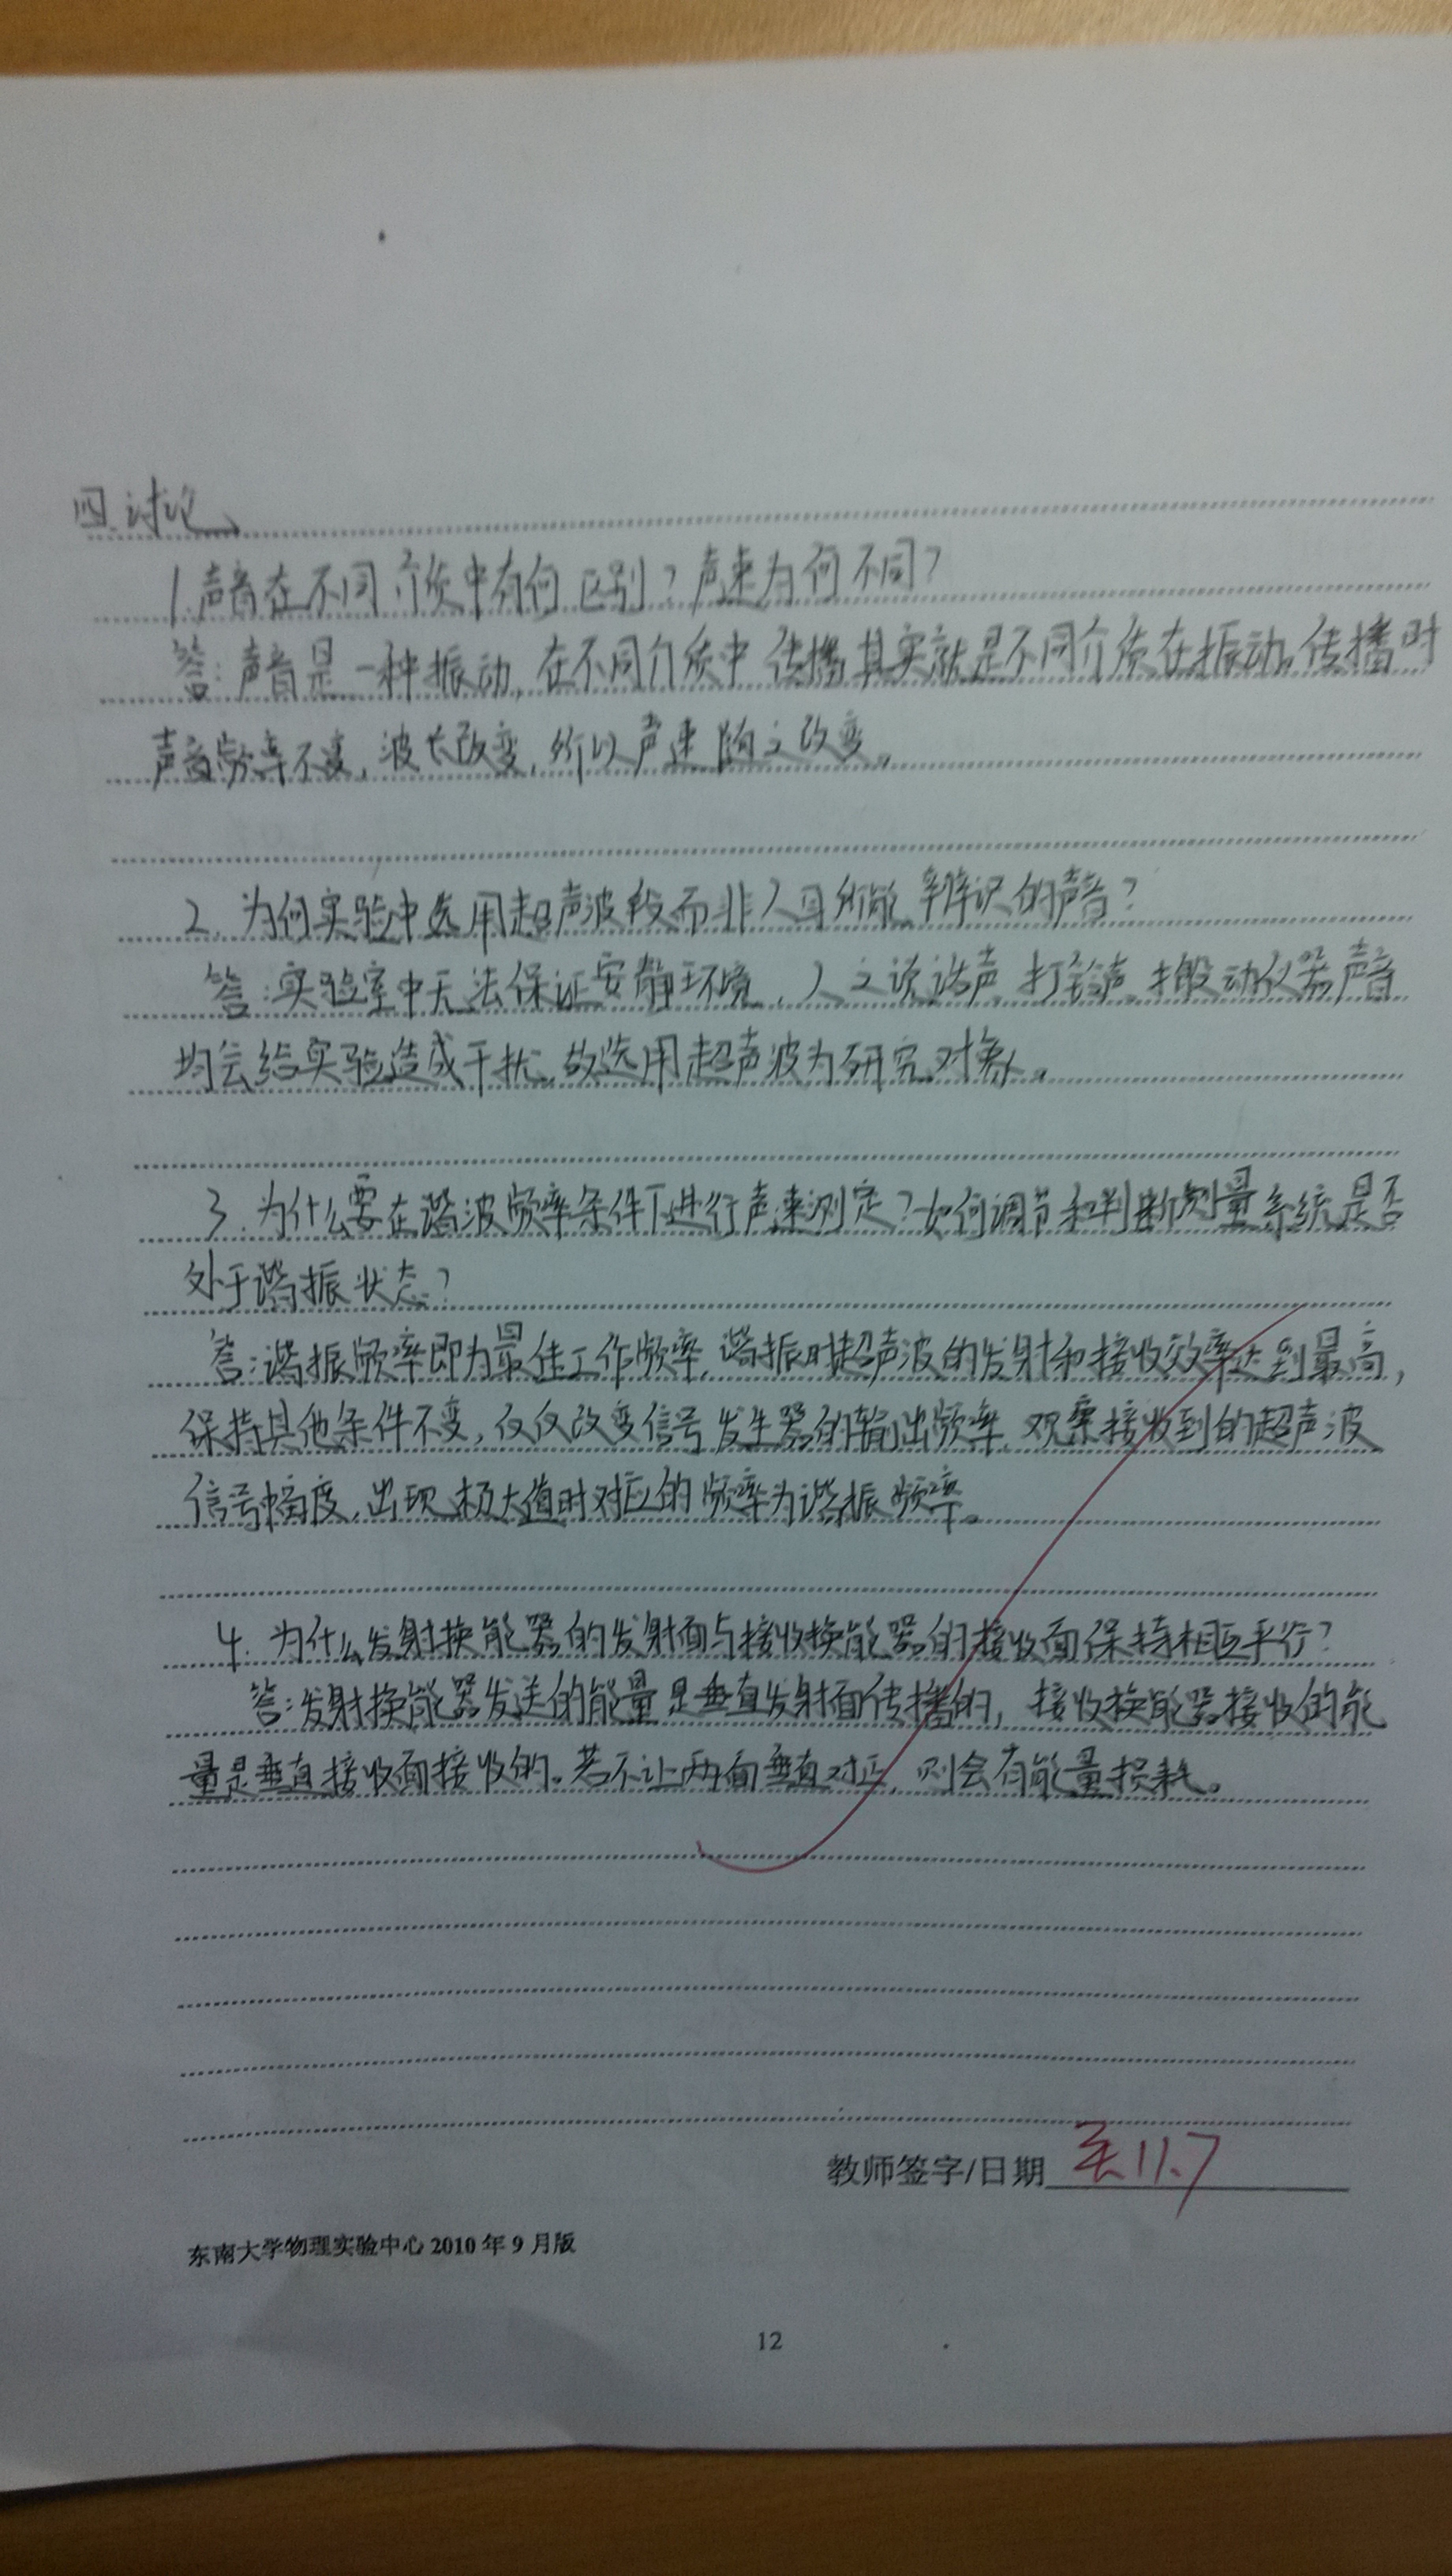 四.讨论
1.声音在不同介质中有何区别？声速为何不同？
答：声音是一种振动，在不同介质中传播其实就是不同介质在振动。传播时
声音频率不变，波长改变，所以声速随之改变。
2.为何实验中选用超声波段而非人耳所能辨识的声音？
答：实验室中无法保证安静环境，人之谈话声，打铃声，搬动仪器声音
均会给实验造成干扰，故选用超声波为研究对象。
3.为什么要在谐波频率条件下进行声速测定？如何调节和判断测量系统是否
处于谐振状态？
答：谐振频率即为最佳工作频率，谐振时超声波的发射和接收效率达到最高，
保持其他条件不变，仅仅改变信号发生器的输出频率，观察接收到的超声波
信号幅度，出现极大值时对应的频率为谐振频率。
4.为什么发射换能器的发射面与接收换能器的接收面保持相互平行？
答：发射换能器发送的能量是垂直发射面传播的，接收换能器接收的能
量是垂直接收面接收的。若不让两面垂直对正，则会有能量损耗。
教师签字/日期 11.7
东南大学物理实验中心 2010 年 9 月版
12